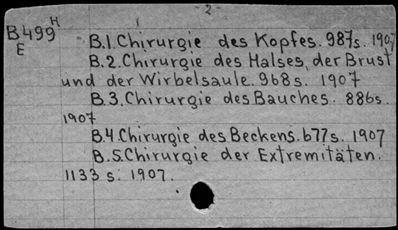 - 2 -
H
B499
E
B.1.Chirurgie des Kopfes. 987s. 1907
B.2.Chirurgie des Halses, der Brust
und der Wirbelsaule. 968s. 1907
B.3.Chirurgie des Bauches. 886s.
1907
B.4.Chirurgie des Beckens. 677s. 1907
B.5.Chirurgie der Extremitäten.
1133 s. 1907.